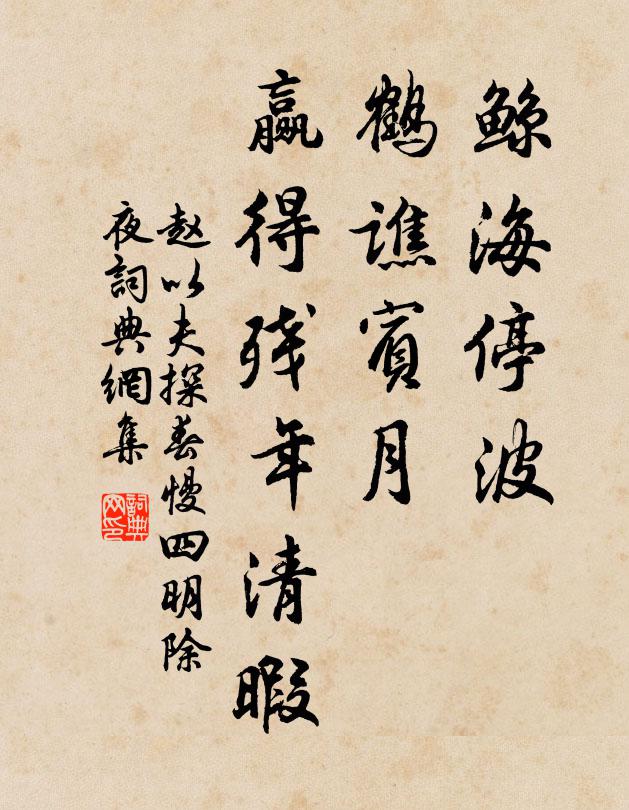 鲸海停波
鹤谯賓月
赢得残年清暇
赵以夫探春慢四明除
夜詞典網集
詞典
网印